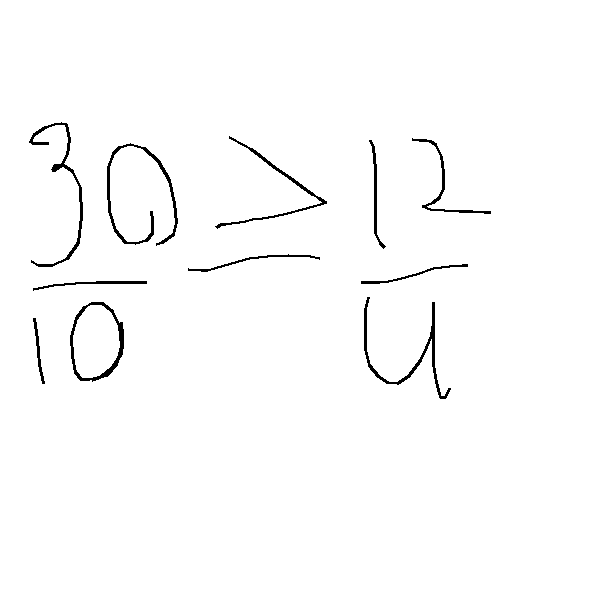 30/10 ≥ 12/4